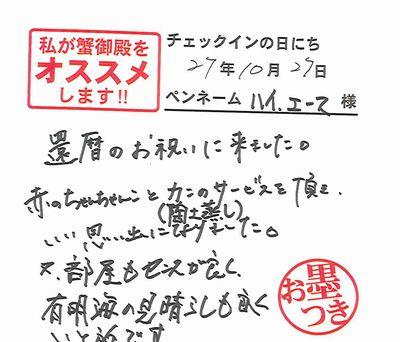 私が蟹御殿を
オススメ
します!!
チェックインの日にち
27年10月27日
ペンネーム ハイ.エース 様
還暦のお祝いに来ました。
赤のちゃんちゃんこと カニのサービスを頂き、
(陶土蒸し)
いい思い出になりました。
又、部屋もセンスが良く、
有明海の見晴らしも良く
いい所です
お墨つき